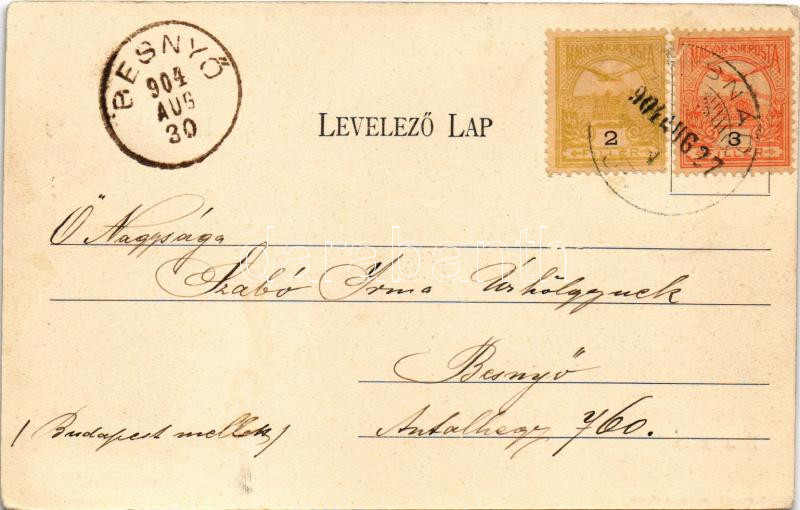 BESNYŐ
904
AUG
30
LEVELEZŐ LAP
MAGYAR KIR. POSTA
2
FILLÉR
MAGYAR KIR. POSTA
3
FILLÉR
904 AUG 27
Ő Nagysága
Szabó Irma Úrhölgynek
Besnyő
(Budapest mellett)
Antalhegy 760.
darabanth